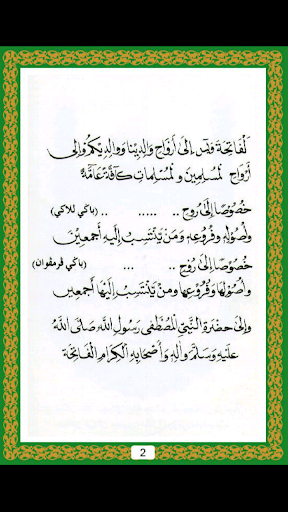 لْفَاتِحَةَ وَقَدْسِ إِلَى أَرْوَاحِ وَالِدِيْنَا وَوَالِدِيْكُمْ وَإِلَى
أَرْوَاحِ لْمُسْلِمِيْنَ وَلْمُسْلِمَاتِ كَآفَّةً عَآمَّةً
خُصُوْصًا إِلَى رُوْحِ .. ..... .. (باكي للاكي)
وَأُصُوْلِهِ وَفُرُوْعِهِ وَمَنْ يَنْتَسِبُ إِلَيْهِ أَجْمَعِيْنَ
خُصُوْصًا إِلَى رُوْحِ .. ... (باكي فرمفوان)
وَأُصُوْلِهَا وَفُرُوْعِهَا وَمَنْ يَنْتَسِبُ إِلَيْهَا أَجْمَعِيْنَ
وَإِلَى حَضْرَةِ النَّبِيِّ الْمُصْطَفَى رَسُوْلِ اللهِ صَلَّى اللهُ
عَلَيْهِ وَسَلَّمَ وَآلِهِ وَأَصْحَابِهِ الْكِرَامِ الْفَاتِحَة
2